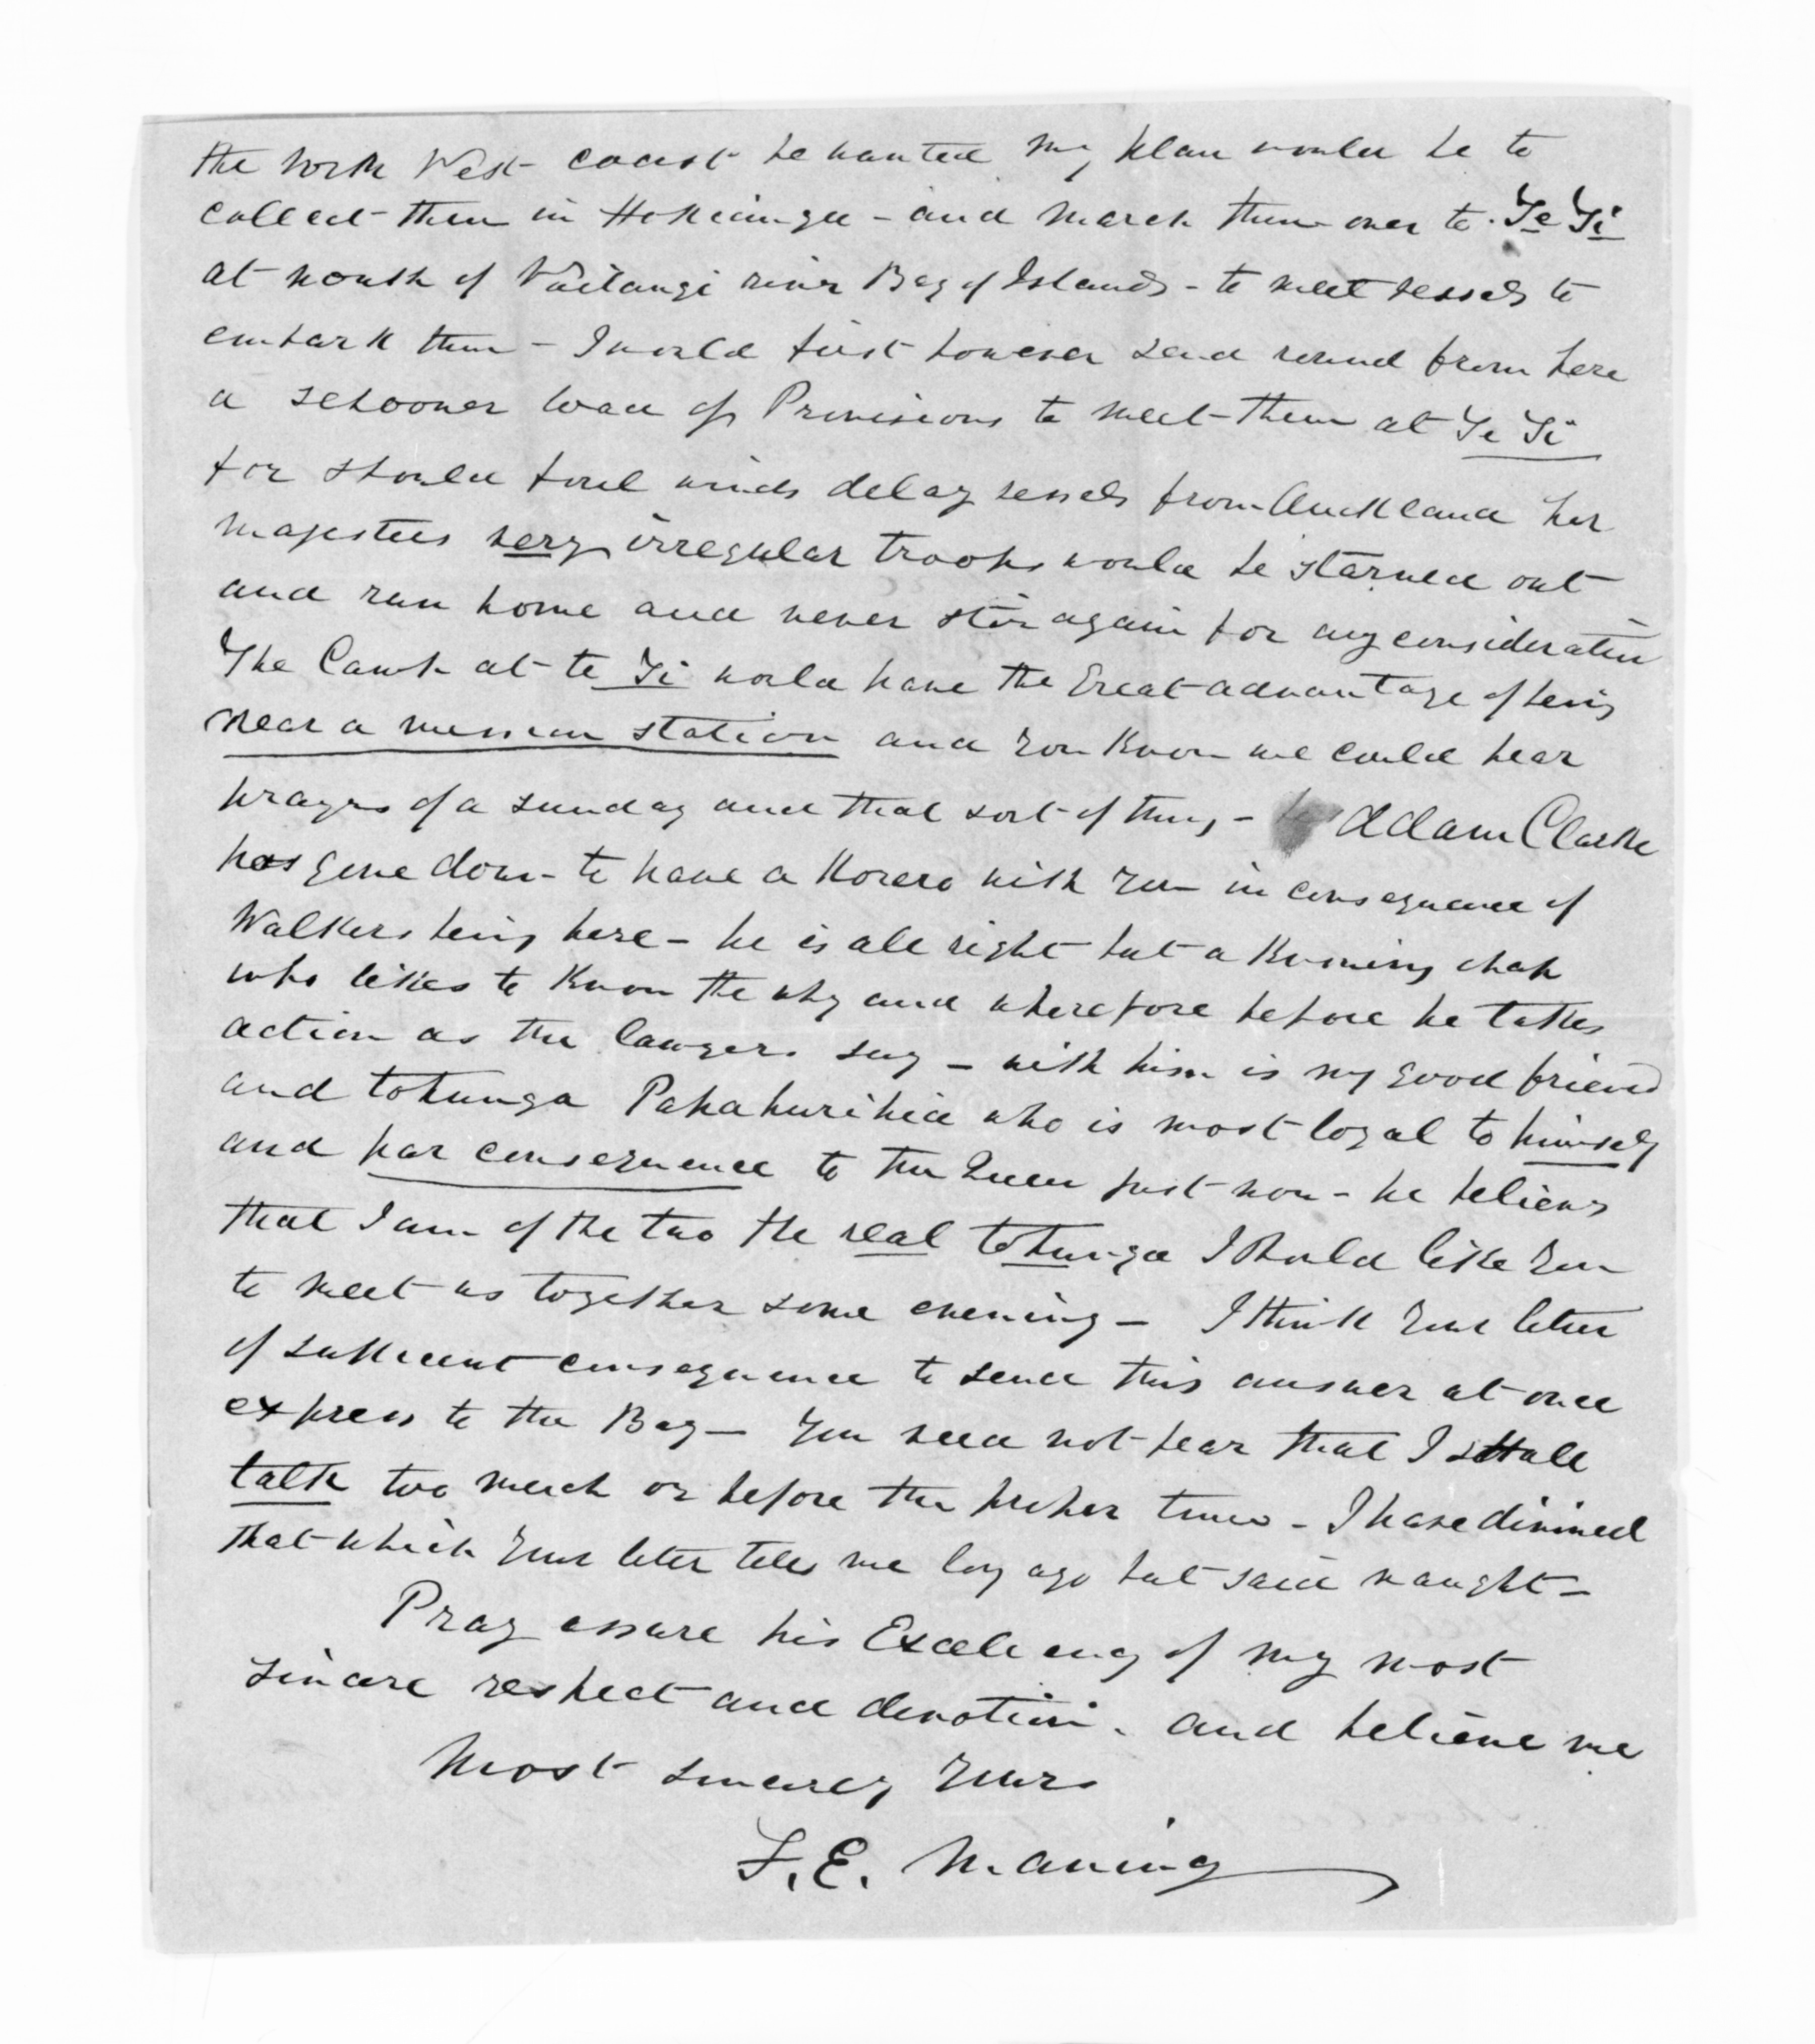 the North West coast be wanted my plan would be to
collect them in Hokianga - and march them over to Te Ti
at mouth of Waitangi river Bay of Islands - to meet vessels to
embark them - I would first however send round from here
a schooner load of Provisions to meet them at Te Ti
for should foul winds delay vessels from Auckland her
majesties very irregular troops would be starved out
and run home and never stir again for any consideration
The Camp at te Ti would have the Great advantage of being
near a mission station and you know we could hear
prayers of a sunday and that sort of thing - Adam Clarke
has gone down to have a Korero with you in consequence of
Walkers being here - he is all right but a Kunning chap
who likes to know the why and wherefore before he takes
action as the lawyers say - with him is my good friend
and tohunga Papahurihia who is most loyal to himself
and par consequence to the Queen just now - he believes
that I am of the two the real tohunga I should like you
to meet us together some evening - I think your letter
of sufficient consequence to send this answer at once
express to the Bay - You need not fear that I shall
talk too much or before the proper time - I have divined
that which your letter tells me long ago but said naught -
Pray assure his Excellency of my most
sincere respect and devotion. and believe me
Most sincerely Yours
F. E. Maning